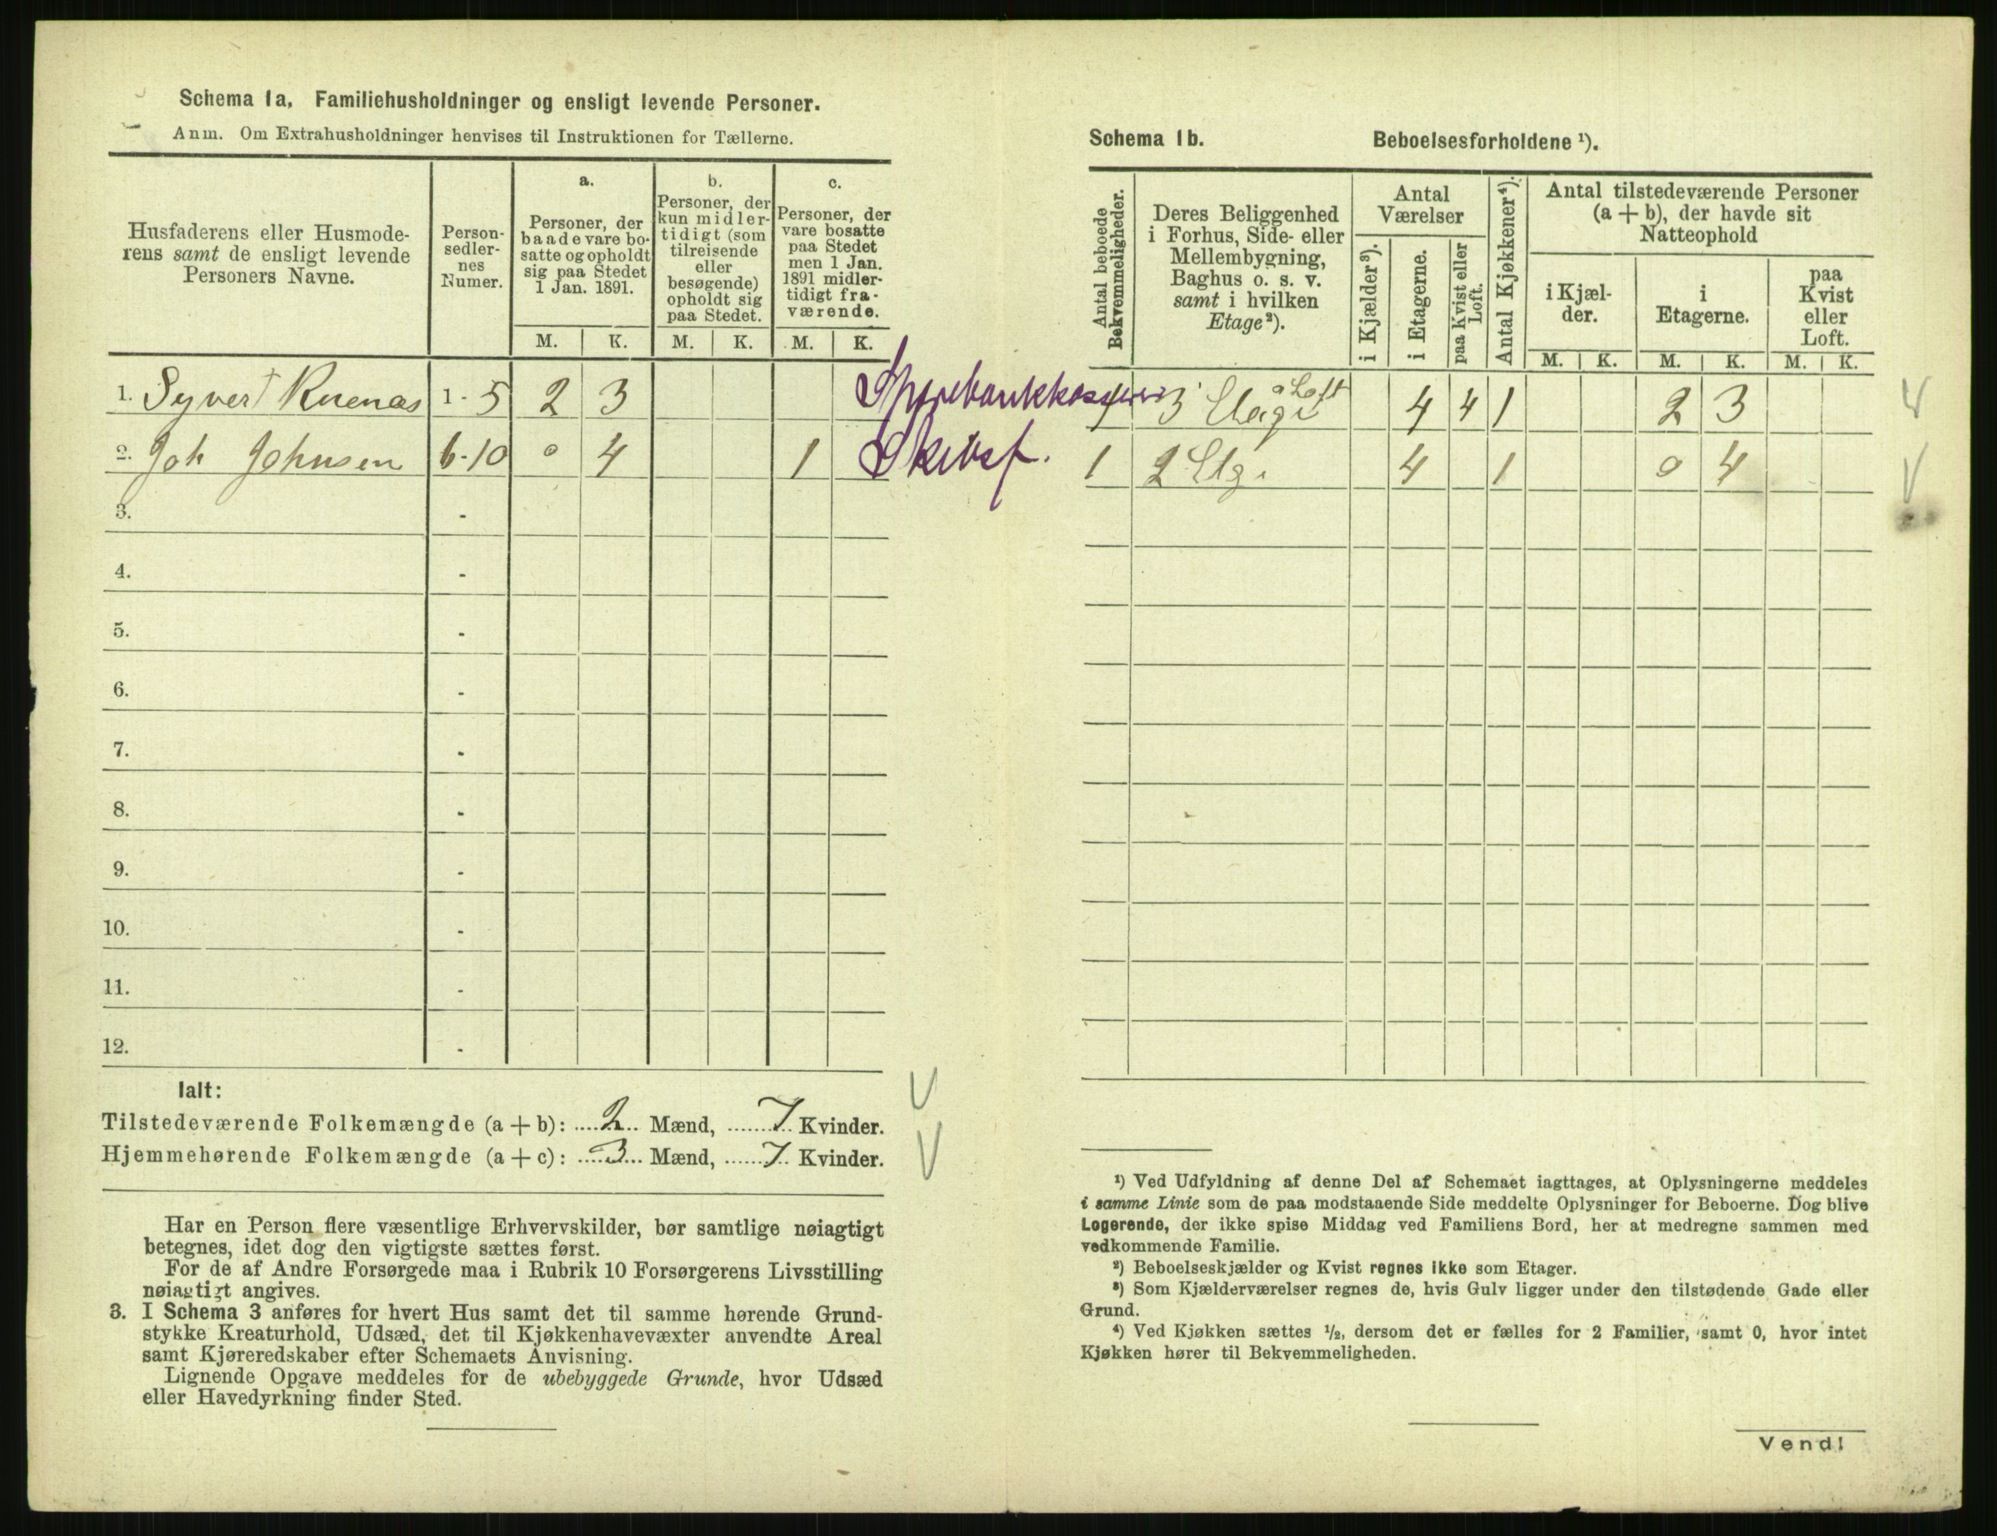 Schema 1a. Familiehusholdninger og ensligt levende Personer.
Anm. Om Extrahusholdninger henvises til Instruktionen for Tællerne.
Husfaderens eller Husmode-
rens samt de ensligt levende
Personers Navne.
Person-
sedler-
nes
Numer.
a.
Personer, der
baade vare bo-
satte og opholdt
sig paa Stedet
1 Jan. 1891.
b.
Personer, der
kun midler-
tidigt (som
tilreisende
eller
besøgende)
opholdt sig
paa Stedet.
c.
Personer, der
vare bosatte
paa Stedet
men 1 Jan.
1891 midler-
tidigt fra-
værende.
M. K. M. K. M. K.
1. Syvert Knenas 1 - 5 2 3 Sparebankkasserer
2. Joh Johnsen 6-10 0 4 1 Skibsf.
3. -
4. -
5. -
6. -
7. -
8. -
9. -
10. -
11. -
12. -
Ialt:
Tilstedeværende Folkemængde (a + b): 2 Mænd, 7 Kvinder.
Hjemmehørende Folkemængde (a + c): 3 Mænd, 7 Kvinder.
Har en Person flere væsentlige Erhvervskilder, bør samtlige nøiagtigt
betegnes, idet dog den vigtigste sættes først.
For de af Andre Forsørgede maa i Rubrik 10 Forsørgerens Livsstilling
nøiagtigt angives.
3. I Schema 3 anføres for hvert Hus samt det til samme hørende Grund-
stykke Kreaturhold, Udsæd, det til Kjøkkenhavevæxter anvendte Areal
samt Kjøreredskaber efter Schemaets Anvisning.
Lignende Opgave meddeles for de ubebyggede Grunde, hvor Udsæd
eller Havedyrkning finder Sted.
Schema 1b. Beboelsesforholdene ¹).
Antal beboede
Bekvemmeligheder.
Deres Beliggenhed
i Forhus, Side- eller
Mellembygning,
Baghus o. s. v.
samt i hvilken
Etage²).
Antal
Værelser
i Kjælder³).
i Etagerne.
paa Kvist eller
Loft.
Antal Kjøkkener⁴).
Antal tilstedeværende Personer
(a + b), der havde sit
Natteophold
i Kjæl-
der.
i
Etagerne.
paa
Kvist
eller
Loft.
M. K. M. K. M. K.
1 3 Etage o Loft 4 4 1 2 3
1 2 Etg. 4 1 0 4
¹) Ved Udfyldning af denne Del af Schemaet iagttages, at Oplysningerne meddeles
i samme Linie som de paa modstaaende Side meddelte Oplysninger for Beboerne. Dog blive
Logerende, der ikke spise Middag ved Familiens Bord, her at medregne sammen med
vedkommende Familie.
²) Beboelseskjælder og Kvist regnes ikke som Etager.
³) Som Kjælderværelser regnes de, hvis Gulv ligger under den tilstødende Gade eller
Grund.
⁴) Ved Kjøkken sættes ½, dersom det er fælles for 2 Familier, samt 0, hvor intet
Kjøkken hører til Bekvemmeligheden.
Vend!